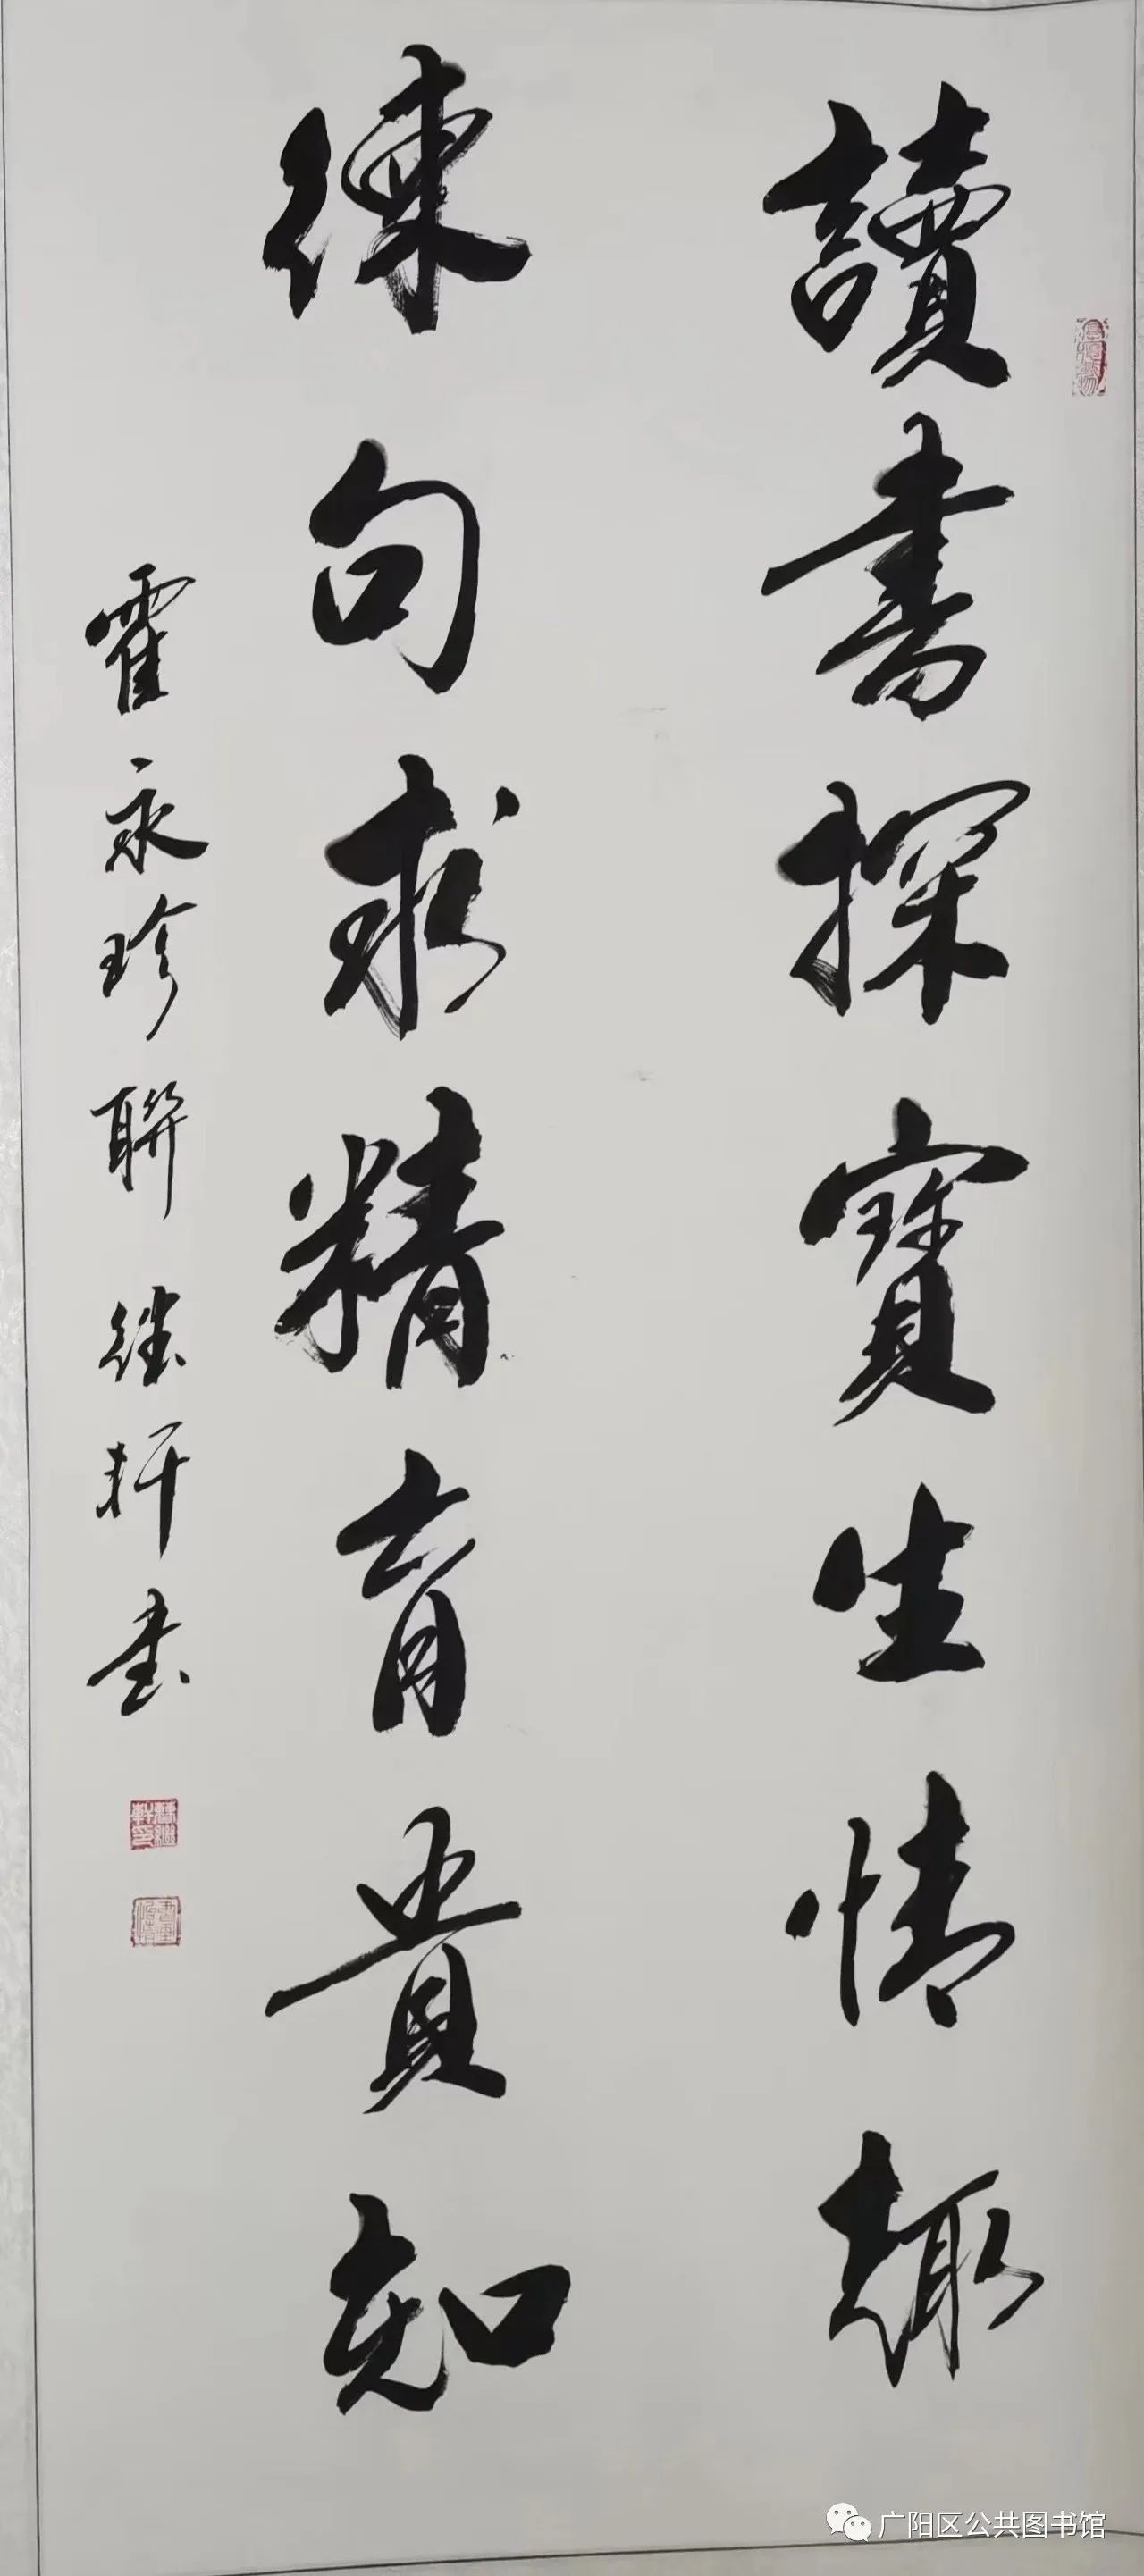 讀書探寶生情趣
練句求精育貴知
霍永珍聯 继軒书
广阳区公共图书馆